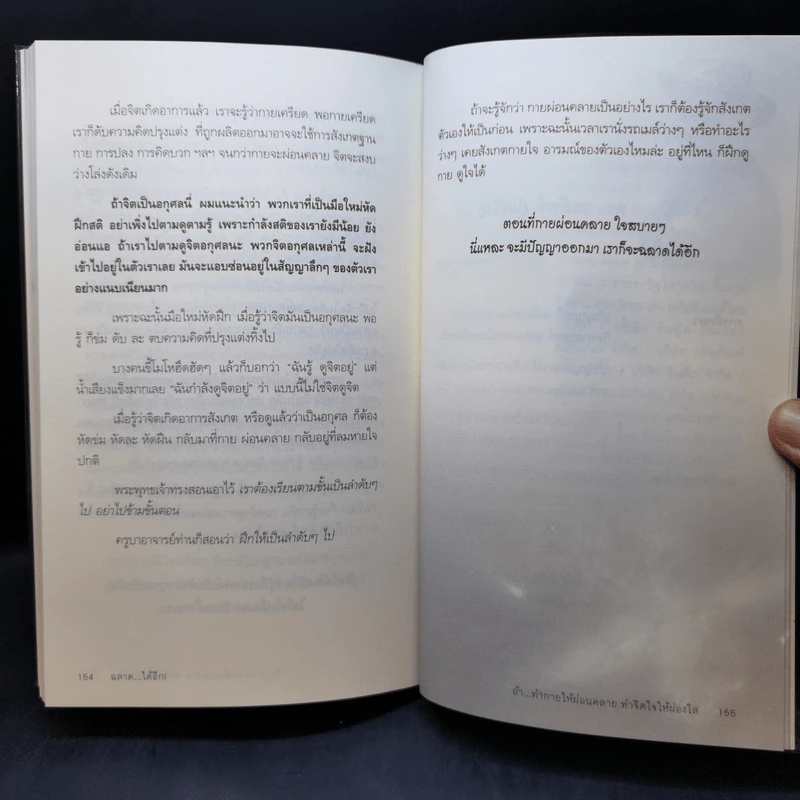 เมื่อจิตเกิดอาการแล้ว เราจะรู้ว่ากายเครียด พอกายเครียด
เราก็ดับความคิดปรุงแต่ง ที่ถูกผลิตออกมาอาจจะใช้การสังเกตฐาน
กาย การปลง การคิดบวก ฯลฯ จนกว่ากายจะผ่อนคลาย จิตจะสงบ
ว่างโล่งดังเดิม
ถ้าจิตเป็นอกุศลนี่ ผมแนะนำว่า พวกเราที่เป็นมือใหม่หัด
ฝึกสติ อย่าเพิ่งไปตามดูตามรู้ เพราะกำลังสติของเรายังมีน้อย ยัง
อ่อนแอ ถ้าเราไปตามดูจิตอกุศลนะ พวกจิตอกุศลเหล่านี้ จะฝัง
เข้าไปอยู่ในตัวเราเลย มันจะแอบซ่อนอยู่ในสัญญาลึกๆ ของตัวเรา
อย่างแนบเนียนมาก
เพราะฉะนั้นมือใหม่หัดฝึก เมื่อรู้ว่าจิตมันเป็นอกุศลนะ พอ
รู้ ก็ข่ม ดับ ละ ตบความคิดที่ปรุงแต่งทิ้งไป
บางคนขี้โมโหฮึดฮัดๆ แล้วก็บอกว่า "ฉันรู้ ดูจิตอยู่" แต่
น้ำเสียงแข็งมากเลย "ฉันกำลังดูจิตอยู่" ว่า แบบนี้ไม่ใช่จิตดูจิต
เมื่อรู้ว่าจิตเกิดอาการสังเกต หรือดูแล้วว่าเป็นอกุศล ก็ต้อง
หัดข่ม หัดละ หัดฝืน กลับมาที่กาย ผ่อนคลาย กลับอยู่ที่ลมหายใจ
ปกติ
พระพุทธเจ้าทรงสอนเอาไว้ เราต้องเรียนตามขั้นเป็นลำดับๆ
ไป อย่าไปข้ามขั้นตอน
ครูบาอาจารย์ท่านก็สอนว่า ฝึกให้เป็นลำดับๆ ไป
164 ฉลาด...ได้อีก!
ถ้าจะรู้จักว่า กายผ่อนคลายเป็นอย่างไร เราก็ต้องรู้จักสังเกต
ตัวเองให้เป็นก่อน เพราะฉะนั้นเวลาเรานั่งรถเมล์ว่างๆ หรือทำอะไร
ว่างๆ เคยสังเกตกายใจ อารมณ์ของตัวเองไหมล่ะ อยู่ที่ไหน ก็ฝึกดู
กาย ดูใจได้
ตอนที่กายผ่อนคลาย ใจสบายๆ
นี่แหละ จะมีปัญญาออกมา เราก็จะฉลาดได้อีก
ถ้า...ทำกายให้ผ่อนคลาย ทำจิตใจให้ผ่องใส 165